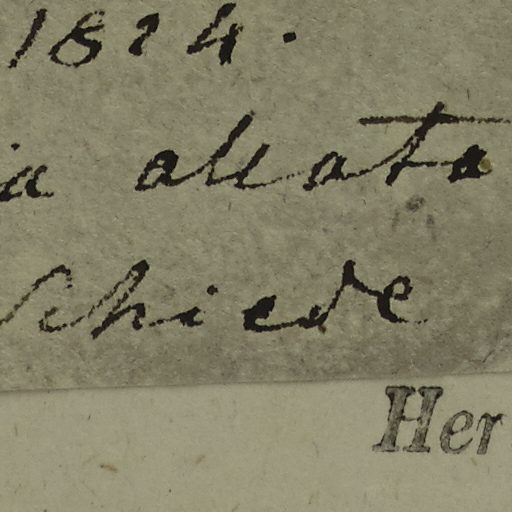 1824.
ia allata
Schiede
Her